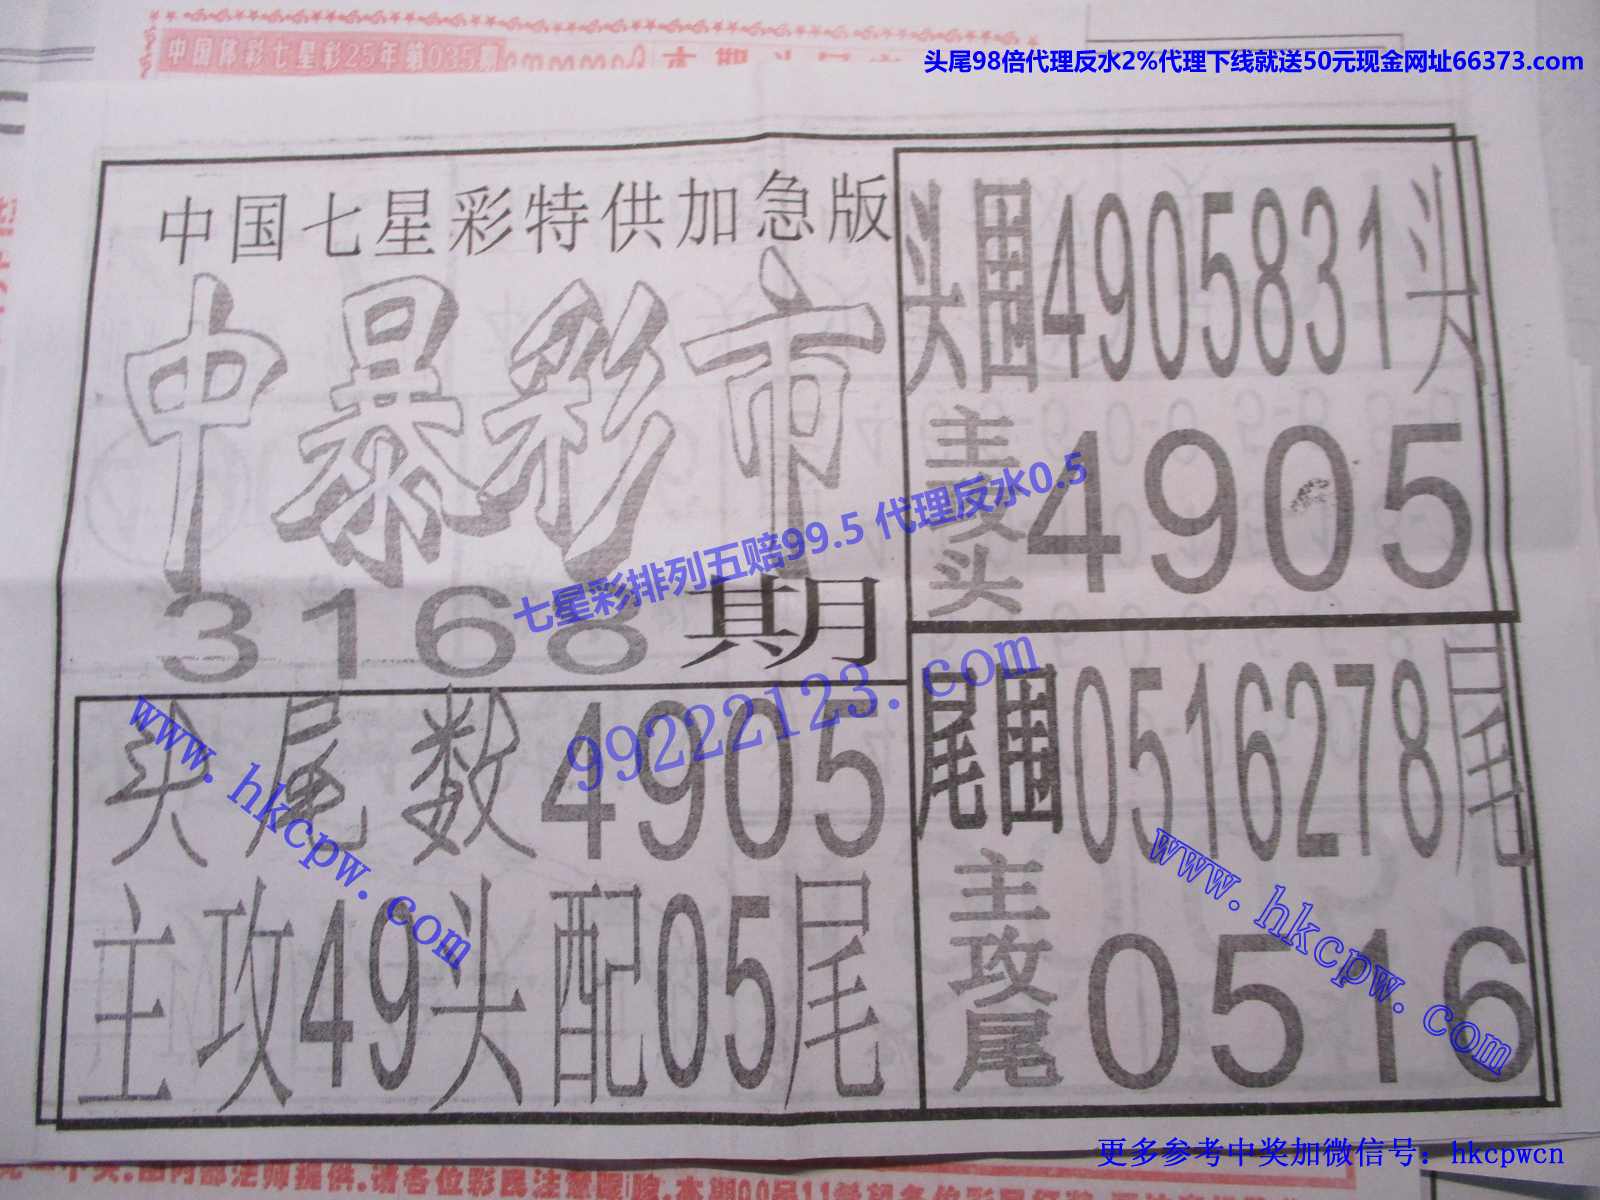 中国体彩七星彩25年第035期
头尾98倍代理反水2%代理下线就送50元现金网址66373.com
中国七星彩特供加急版
中暴彩市
3168期
头围4905831头
主攻头
4905
七星彩排列五赔99.5 代理反水0.5
99222123.com
头尾数4905
主攻49头配05尾
尾围0516278尾
主攻尾
0516
www.hkcpw.com
www.hkcpw.com
更多参考中奖加微信号：hkcpwcn